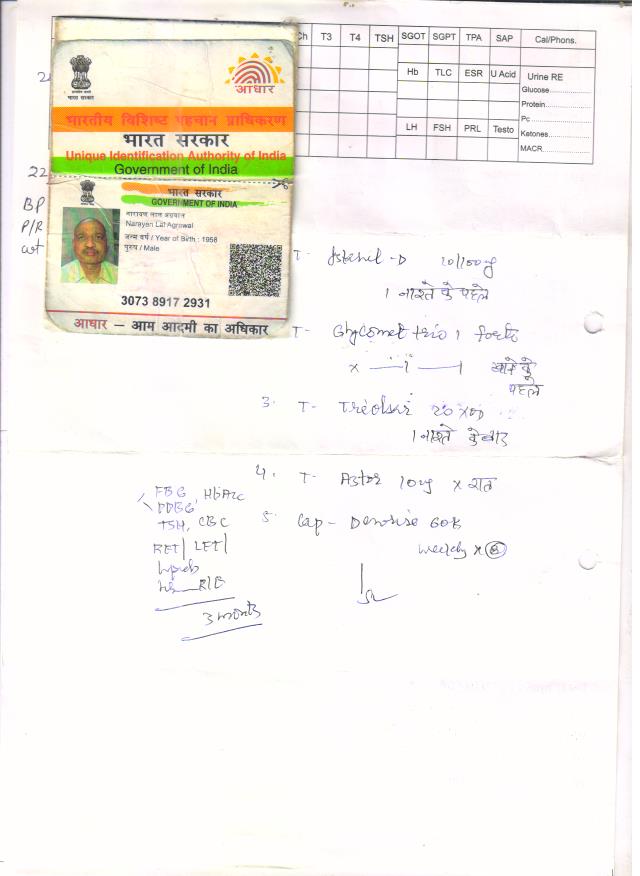 Ch T3 T4 TSH SGOT SGPT TPA SAP Cal/Phons.
Hb TLC ESR U Acid Urine RE
Glucose
Protein
Pc
LH FSH PRL Testo Ketones
MACR
आधार
भारत सरकार
भारतीय विशिष्ट पहचान प्राधिकरण
भारत सरकार
Unique Identification Authority of India
Government of India
भारत सरकार
GOVERNMENT OF INDIA
नारायण लाल अग्रवाल
Narayan Lal Agrawal
जन्म वर्ष / Year of Birth : 1958
पुरुष / Male
3073 8917 2931
आधार — आम आदमी का अधिकार
22
BP
P/R
wt
T-
1 नाश्ते के पहले
T- Glycomet trio 1 forte
x — 1 — 1 खाने के
पहले
3. T- Triolsar 20
1 नाश्ते के बाद
4. T- Astor 10mg x रात
5. Cap - Denorise 60k
weekly x 8
FBG, HbA1c
PPBG
TSH, CBC
RFT LFT
R/E
3 months